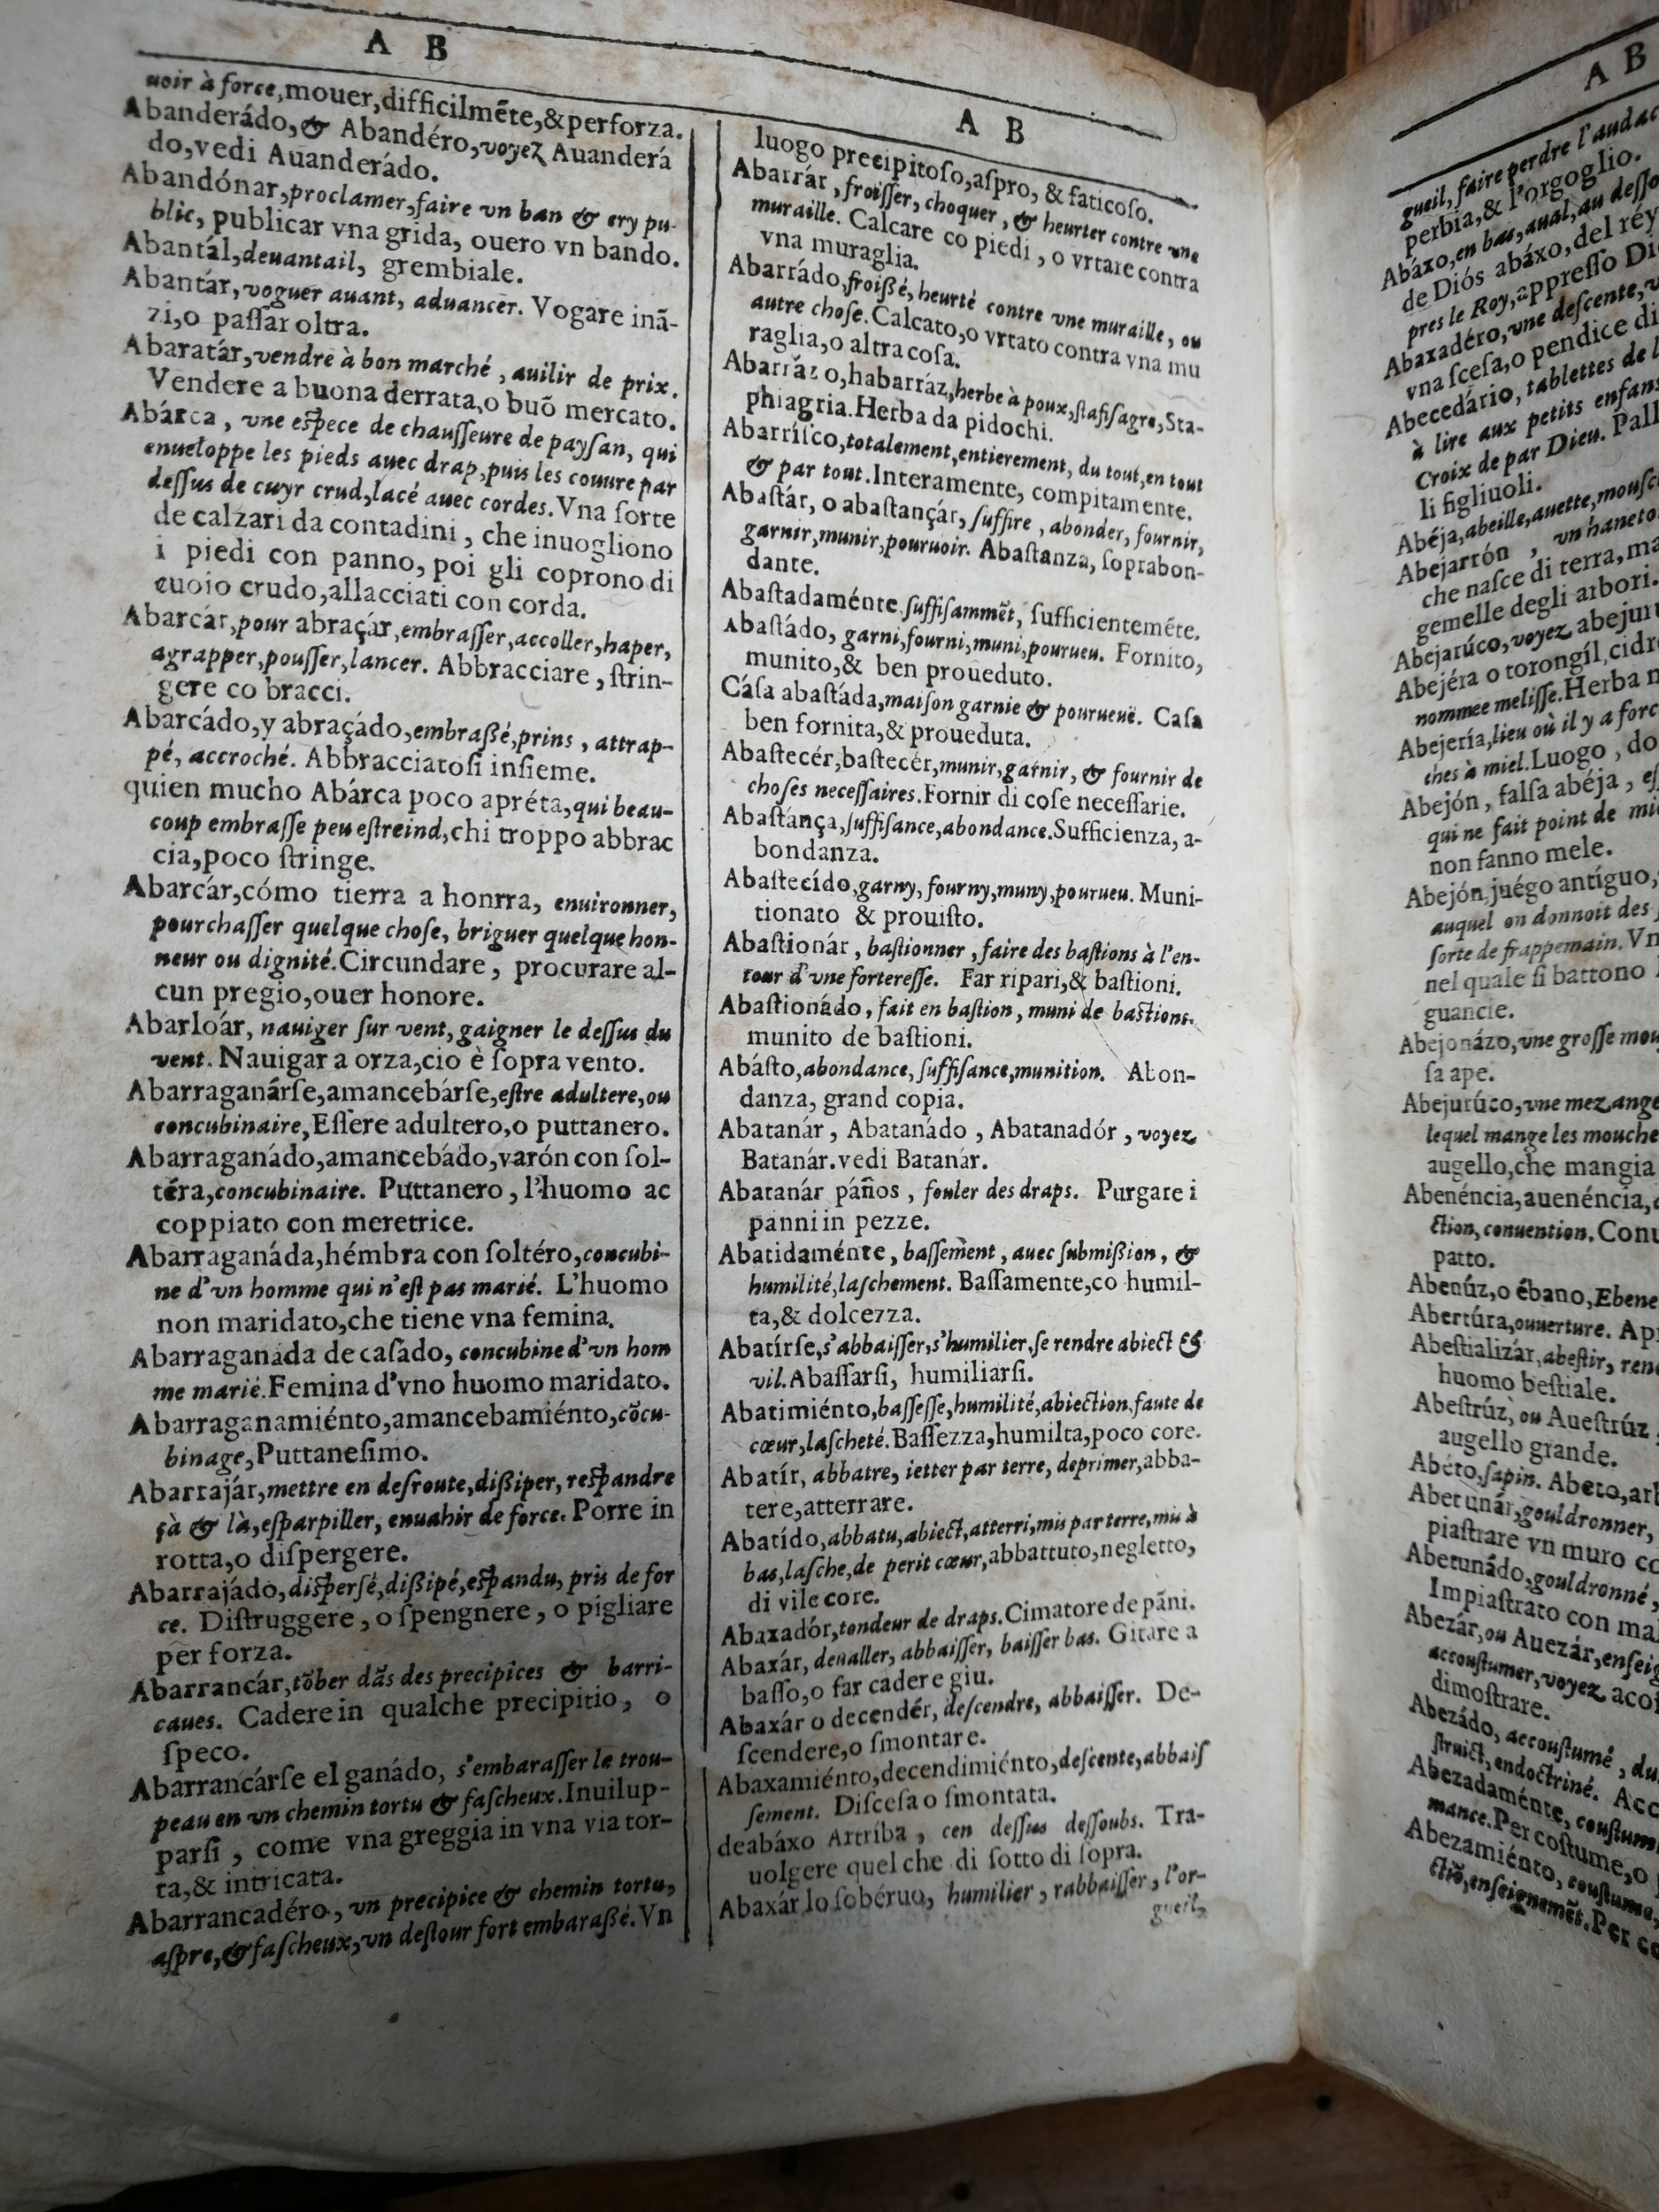 A B
uoir à force,mouer,difficilmẽte,&perforza.
Abanderádo,& Abandéro,voyez Auanderá
do,vedi Auanderádo.
Abandónar,proclamer,faire vn ban & cry pu-
blic, publicar vna grida, ouero vn bando.
Abantál,deuantail, grembiale.
Abantár,voguer auant, aduancer. Vogare inã-
zi,o paſſar oltra.
Abaratár,vendre à bon marché , auilir de prix.
Vendere a buona derrata,o buõ mercato.
Abárca , vne eſpece de chauſſeure de payſan, qui
enueloppe les pieds auec drap,puis les couure par
deſſus de cuyr crud,lacé auec cordes.Vna ſorte
de calzari da contadini , che inuogliono
i piedi con panno, poi gli coprono di
cuoio crudo,allacciati con corda.
Abarcár,pour abraçár,embraſſer,accoller,haper,
agrapper,pouſſer,lancer. Abbracciare , ſtrin-
gere co bracci.
Abarcádo,y abraçádo,embraßé,prins , attrap-
pé, accroché. Abbracciatoſi inſieme.
quien mucho Abárca poco apréta,qui beau-
coup embraſſe peu eſtreind,chi troppo abbrac
cia,poco ſtringe.
Abarcár,cómo tierra a honrra, enuironner,
pourchaſſer quelque choſe, briguer quelque hon-
neur ou dignité.Circundare , procurare al-
cun pregio,ouer honore.
Abarloár, nauiger ſur vent, gaigner le deſſus du
vent. Nauigar a orza,cio è ſopra vento.
Abarraganárſe,amancebárſe,eſtre adultere,ou
concubinaire,Eſſere adultero,o puttanero.
Abarraganádo,amancebádo,varón con ſol-
téra,concubinaire. Puttanero , l'huomo ac
coppiato con meretrice.
Abarraganáda,hémbra con ſoltéro,concubi-
ne d'vn homme qui n'eſt pas marié. L'huomo
non maridato,che tiene vna femina.
Abarraganáda de caſado, concubine d'vn hom
me marié.Femina d'vno huomo maridato.
Abarraganamiénto,amancebamiénto,cõcu-
binage,Puttaneſimo.
Abarrajár,mettre en deſroute,dißiper, reſpandre
çà & là,eſparpiller, enuahir de force. Porre in
rotta,o diſpergere.
Abarrajádo,diſperſé,dißipé,eſpandu, pris de for
ce. Diſtruggere , o ſpengnere , o pigliare
per forza.
Abarrancár,tõber dãs des precipices & barri-
caues. Cadere in qualche precipitio, o
ſpeco.
Abarrancárſe el ganádo, s'embaraſſer le trou-
peau en vn chemin tortu & faſcheux.Inuilup-
parſi , come vna greggia in vna via tor-
ta,& intricata.
Abarrancadéro, vn precipice & chemin tortu,
aſpre,& faſcheux,vn deſtour fort embaraßé.Vn
A B
luogo precipitoſo,aſpro, & faticoſo.
Abarrár , froiſſer, choquer , & heurter contre vne
muraille. Calcare co piedi , o vrtare contra
vna muraglia.
Abarrádo,froißé,heurté contre vne muraille, ou
autre choſe.Calcato,o vrtato contra vna mu
raglia,o altra coſa.
Abarrázo,habarráz,herbe à poux,ſtafiſagre,Sta-
phiagria.Herba da pidochi.
Abarríſco,totalement,entierement, du tout,en tout
& par tout.Interamente, compitamente.
Abaſtár, o abaſtançár, ſuffire , abonder, fournir,
garnir,munir,pouruoir. Abaſtanza, ſoprabon-
dante.
Abaſtadaménte,ſuffiſammẽt, ſufficientemẽte.
Abaſtádo, garni,fourni,muni,pourueu. Fornito,
munito,& ben proueduto.
Cáſa abaſtáda,maiſon garnie & pourueuë. Caſa
ben fornita,& proueduta.
Abaſtecér,baſtecér,munir,garnir, & fournir de
choſes neceſſaires.Fornir di coſe neceſſarie.
Abaſtánça,ſuffiſance,abondance.Sufficienza, a-
bondanza.
Abaſtecído,garny, fourny,muny,pourueu. Muni-
tionato & prouiſto.
Abaſtionár , baſtionner , faire des baſtions à l'en-
tour d'vne fortereſſe. Far ripari,& baſtioni.
Abaſtionádo, fait en baſtion , muni de baſtions.
munito de baſtioni.
Abáſto,abondance, ſuffiſance,munition. Abon-
danza, grand copia.
Abatanár , Abatanádo , Abatanadór , voyez
Batanár.vedi Batanár.
Abatanár páños , fouler des draps. Purgare i
panni in pezze.
Abatidaménte, baſſement , auec ſubmißion , &
humilité,laſchement. Baſſamente,co humil-
ta,& dolcezza.
Abatírſe,s'abbaiſſer,s'humilier,ſe rendre abiect &
vil.Abaſſarſi, humiliarſi.
Abatimiénto,baſſeſſe,humilité,abiection,faute de
cœur,laſcheté.Baſſezza,humilta,poco core.
Abatír, abbatre, ietter par terre, deprimer,abba-
tere,atterrare.
Abatído,abbatu,abiect,atterri,mis par terre,mis à
bas,laſche,de perit cœur,abbattuto,negletto,
di vile core.
Abaxadór,tondeur de draps.Cimatore de pãni.
Abaxár, deualler, abbaiſſer, baiſſer bas. Gitare a
baſſo,o far cadere giu.
Abaxár o decendér, deſcendre, abbaiſſer. De-
ſcendere,o ſmontare.
Abaxamiénto,decendimiénto,deſcente,abbaiſ
ſement. Diſceſa o ſmontata.
deabáxo Arríba , cen deſſus deſſoubs. Tra-
uolgere quel che di ſotto di ſopra.
Abaxár lo ſobéruo, humilier , rabbaiſſer , l'or-
gueil,
A B
gueil, faire perdre l'audac
perbia,& l'orgoglio.
Abáxo,en bas,aual,au deſſo
de Diós abáxo,del réy
pres le Roy,appreſſo Di
Abaxadéro,vne deſcente,v
vna ſceſa,o pendice di
Abecedário, tablettes de l
à lire aux petits enfans
Croix de par Dieu. Pall
li figliuoli.
Abéja,abeille,auette,mouſc
Abejarrón , vn haneto
che naſce di terra,ma
gemelle degli arbori.
Abejarúco,voyez abejuru
Abejéra o torongíl,cidr
nommee meliſſe.Herba n
Abejería,lieu où il y a forc
ches à miel.Luogo , do
Abejón , falſa abéja , eſ
qui ne fait point de mie
non fanno mele.
Abejón,juégo antíguo,
auquel on donnoit des
ſorte de frappemain.Vn
nel quale ſi battono
guancie.
Abejonázo,vne groſſe mou
ſa ape.
Abejurúco,vne mezange
lequel mange les mouche
augello,che mangia
Abenéncia,auenéncia,
ction,conuention.Conu
patto.
Abenúz,o ébano,Ebene
Abertúra,ouuerture. Ap
Abeſtializár,abeſtir, rend
huomo beſtiale.
Abeſtrúz, ou Aueſtrúz
augello grande.
Abéto,ſapin. Abeto,arb
Abetunár,gouldronner,
piaſtrare vn muro co
Abetunádo,gouldronné,
Impiaſtrato con mal
Abezár,ou Auezár,enſeig
accouſtumer,voyez acoſ
dimoſtrare.
Abezádo, accouſtumé , du
ſtruict,endoctriné. Acc
Abezadaménte, couſtum
mance.Per coſtume,o
Abezamiénto, couſtume,
ctiõ,enſeignemẽt.Per co